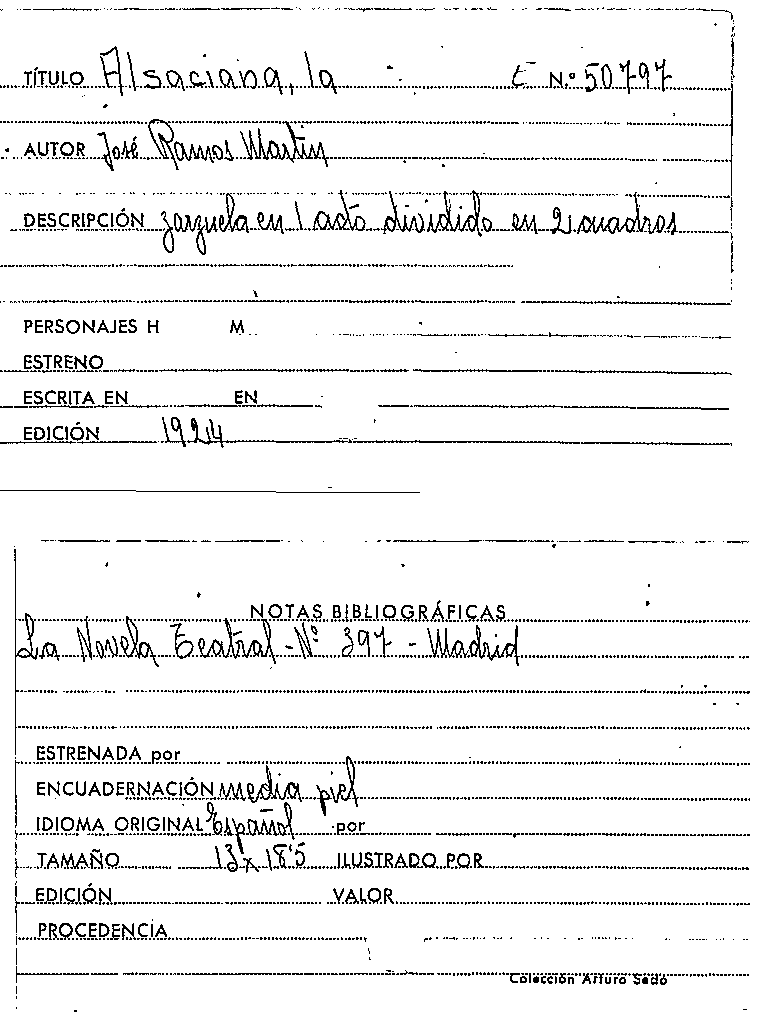 TÍTULO Alsaciana, la E N.º 50797
AUTOR José Ramos Martin
DESCRIPCIÓN zarzuela en 1 acto dividido en 2 cuadros
PERSONAJES H M
ESTRENO
ESCRITA EN EN
EDICIÓN 1924
NOTAS BIBLIOGRÁFICAS
La Novela Teatral - Nº 397 - Madrid
ESTRENADA por
ENCUADERNACIÓN media piel
IDIOMA ORIGINAL Español por
TAMAÑO 13 x 18'5 ILUSTRADO POR
EDICIÓN VALOR
PROCEDENCIA
Colección Arturo Sedó